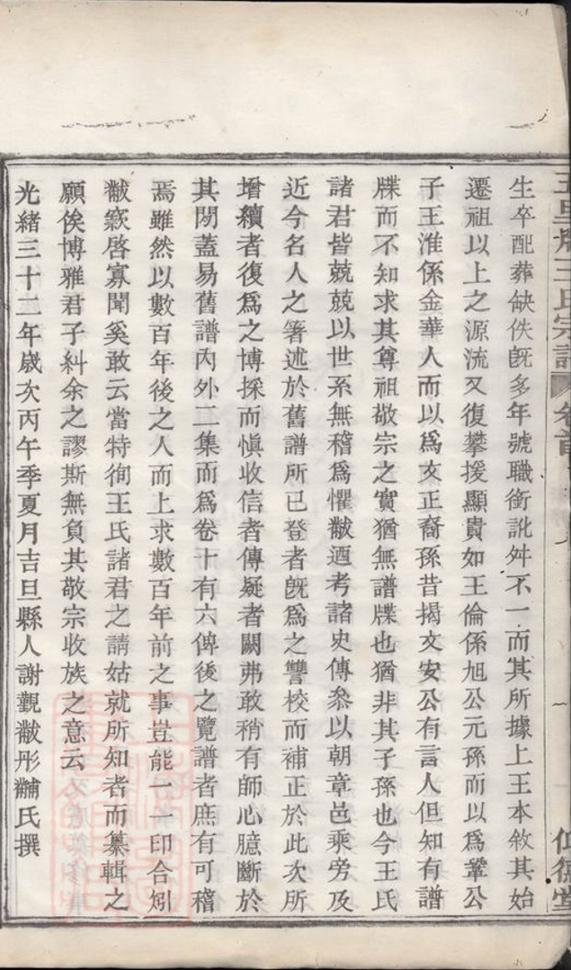 生卒配葬缺佚旣多年號職銜訛舛不一而其所據上王本敘其始
遷祖以上之源流又復攀援顯貴如王倫係旭公元孫而以爲鞏公
子王淮係金華人而以爲文正裔孫昔揭文安公有言人但知有譜
牒而不知求其尊祖敬宗之實猶無譜牒也猶非其子孫也今王氏
諸君皆兢兢以世系無稽爲懼黻迺考諸史傳叅以朝章邑乘旁及
近今名人之箸述於舊譜所已登者旣爲之讐校而補正於此次所
增續者復爲之博採而愼收信者傳疑者闕弗敢稍有師心臆斷於
其閒蓋易舊譜內外二集而爲卷十有六俾後之覽譜者庶有可稽
焉雖然以數百年後之人而上求數百年前之事豈能一一印合矧
黻窾啓寡聞奚敢云當特徇王氏諸君之請姑就所知者而纂輯之
願俟博雅君子糾余之謬斯無負其敬宗收族之意云
光緒三十二年歲次丙午季夏月吉旦縣人謝觀黻彤黼氏撰
王氏宗譜 卷首